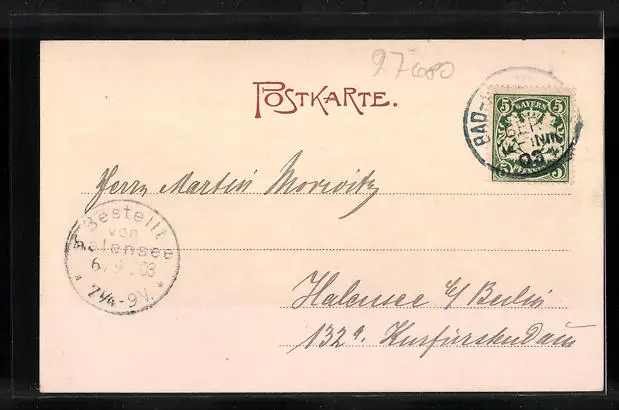 97680
POSTKARTE.
5 BAYERN 5
BAD-
SEP.
03
Herrn Martin Morwitz
Bestellt
von
Halensee
6. 9. 03
* 7¼-9V. *
Halensee b/ Berlin
132a. Kurfürstendam